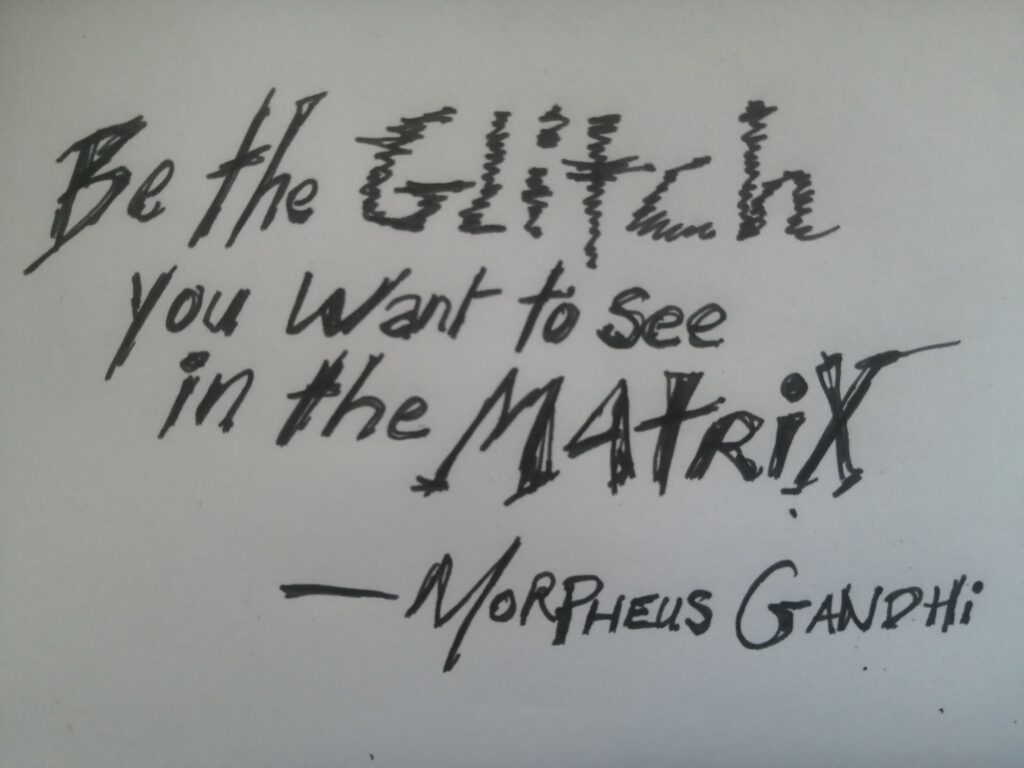 Be the Glitch
you want to see
in the MAtriX
— MORPHEUS GANDHi